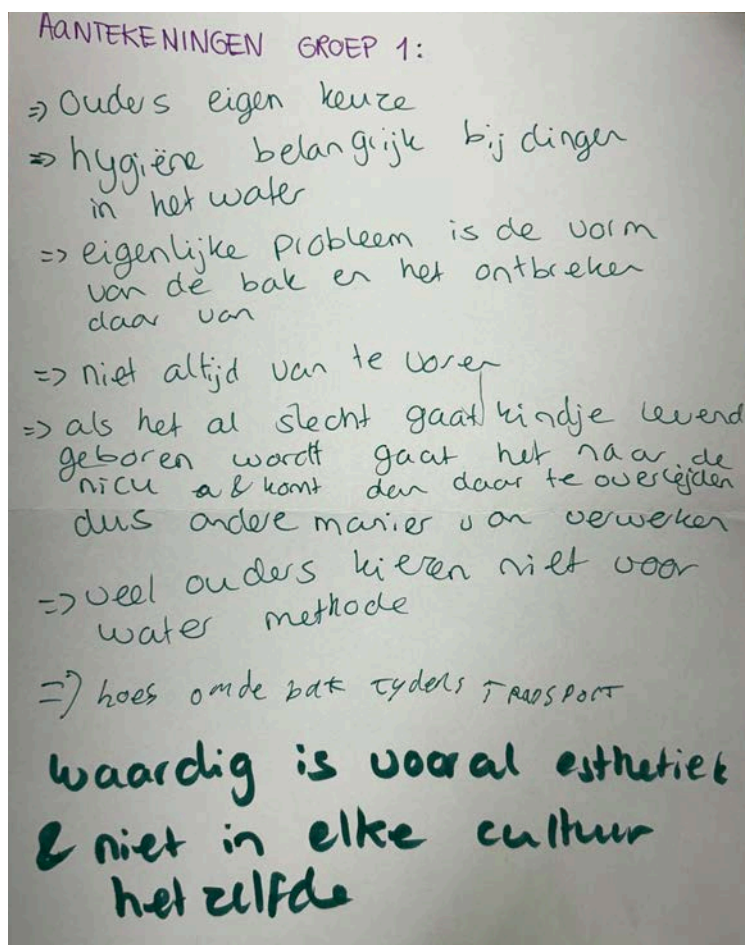 AANTEKENINGEN GROEP 1:
=> ouders eigen keuze
=> hygiëne belangrijk bij dingen
in het water
=> eigenlijke probleem is de vorm
van de bak en het ontbreken
daar van
=> niet altijd van te voren
=> als het al slecht gaat/kindje levend
geboren wordt gaat het naar de
nicu & komt den daar te overlejden
dus andere manier van verwerken
=> veel ouders kiezen niet voor
water methode
=> hoes omde bak tydens TRANSPORT
waardig is vooral esthetiek
& niet in elke cultuur
het zelfde